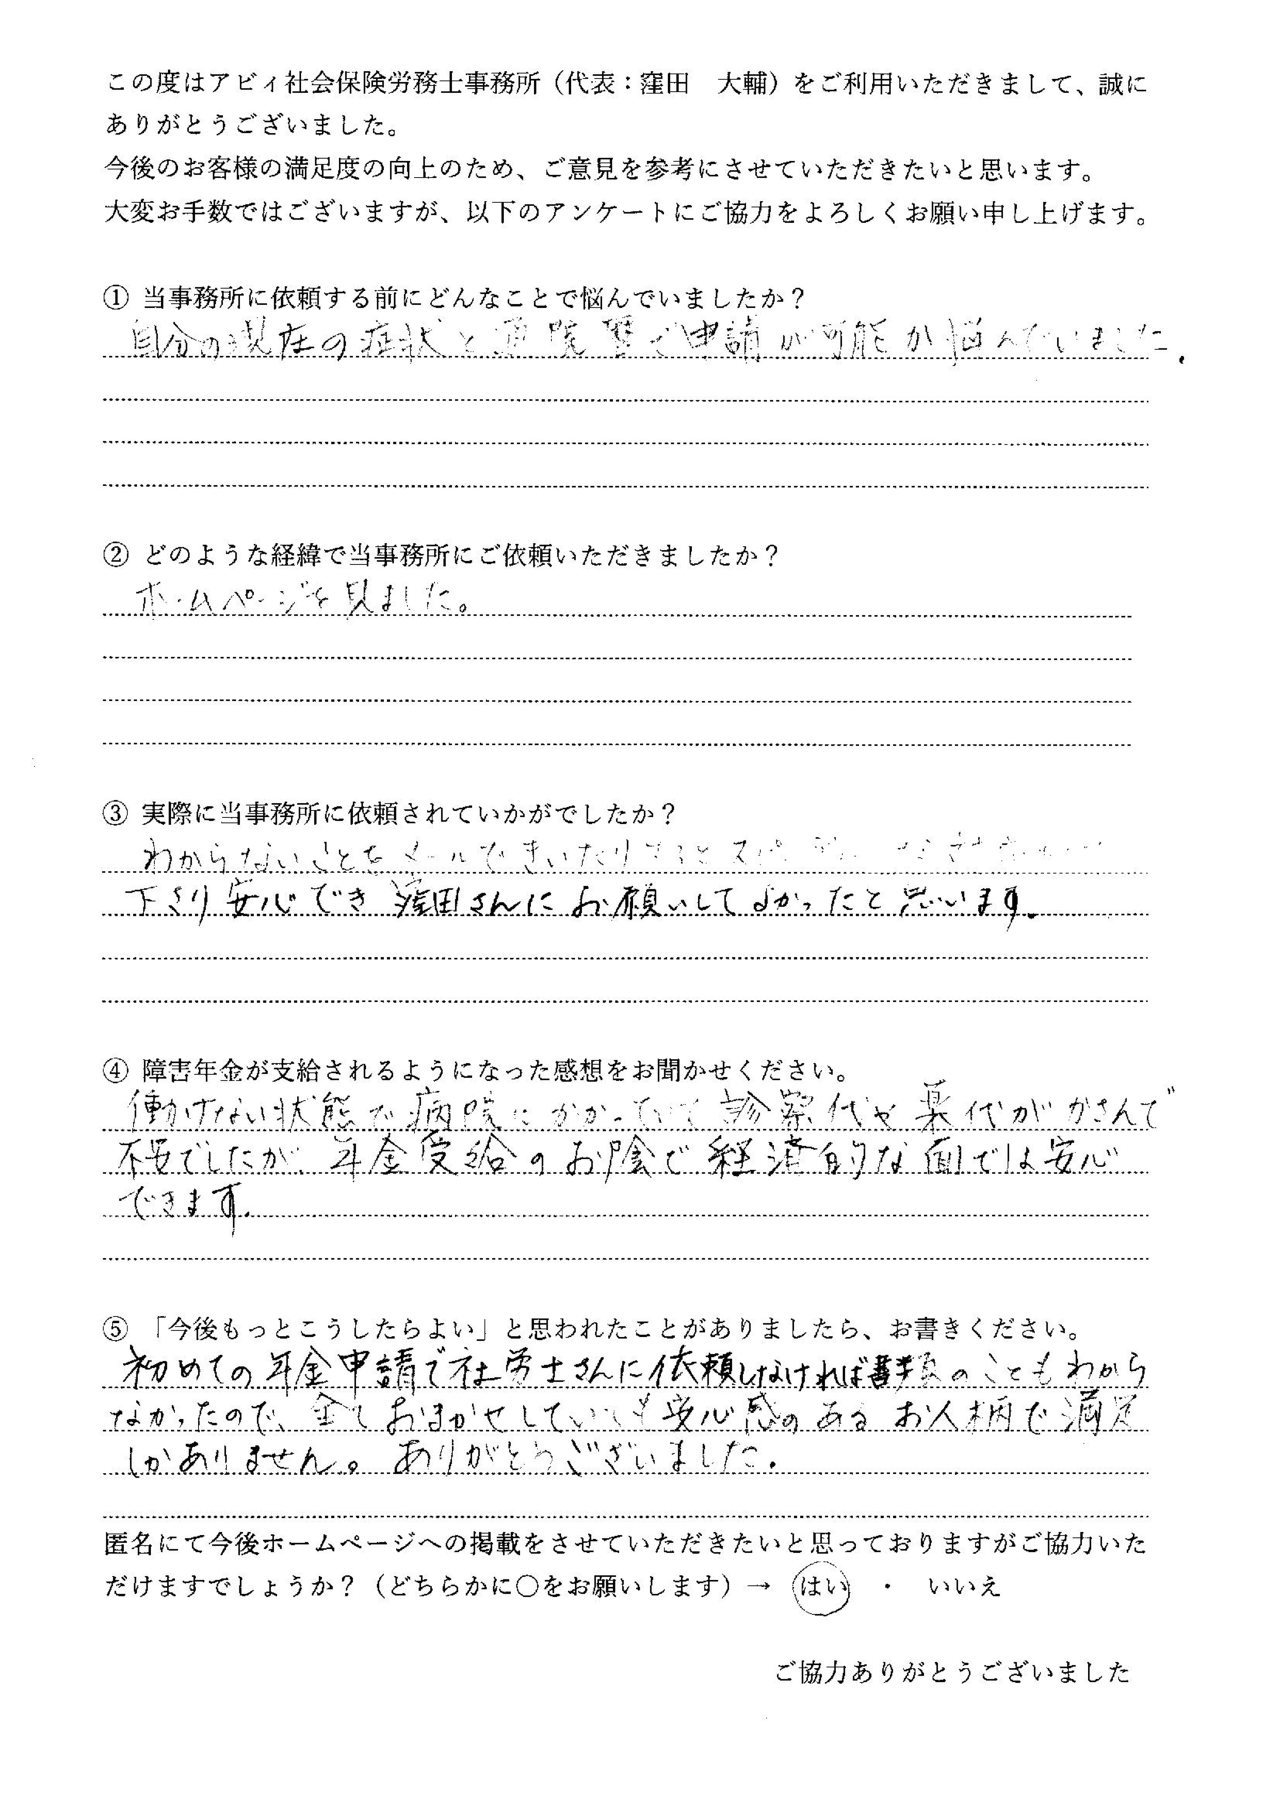 この度はアビィ社会保険労務士事務所（代表：窪田　大輔）をご利用いただきまして、誠に
ありがとうございました。
今後のお客様の満足度の向上のため、ご意見を参考にさせていただきたいと思います。
大変お手数ではございますが、以下のアンケートにご協力をよろしくお願い申し上げます。
① 当事務所に依頼する前にどんなことで悩んでいましたか？
自分の現在の症状と通院歴で申請が可能か悩んでいました.
② どのような経緯で当事務所にご依頼いただきましたか？
ホームページを見ました。
③ 実際に当事務所に依頼されていかがでしたか？
わからないことをメールできいたりすると
下さり安心でき窪田さんにお願いしてよかったと思います.
④ 障害年金が支給されるようになった感想をお聞かせください。
働けない状態で病院にかかっていて診察代や薬代がかさんで
不安でしたが、年金受給のお陰で経済的な面では安心
できます.
⑤ 「今後もっとこうしたらよい」と思われたことがありましたら、お書きください。
初めての年金申請で社労士さんに依頼しなければ書類のこともわから
なかったので、全ておまかせしていても安心感のあるお人柄で満足
しかありません。ありがとうございました.
匿名にて今後ホームページへの掲載をさせていただきたいと思っておりますがご協力いた
だけますでしょうか？（どちらかに○をお願いします）→　はい　・　いいえ
ご協力ありがとうございました